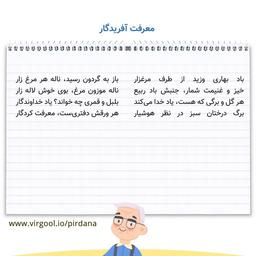 معرفت آفریدگار
باد بهاری وزید از طرف مرغزار باز به گردون رسید، ناله هر مرغ زار
خیز و غنیمت شمار، جنبش باد ربیع ناله موزون مرغ، بوی خوش لاله زار
هر گل و برگی که هست، یاد خدا می‌کند بلبل و قمری چه خواند؟ یاد خداوندگار
برگ درختان سبز در نظر هوشیار هر ورقش دفتری‌ست، معرفت کردگار
www.virgool.io/pirdana